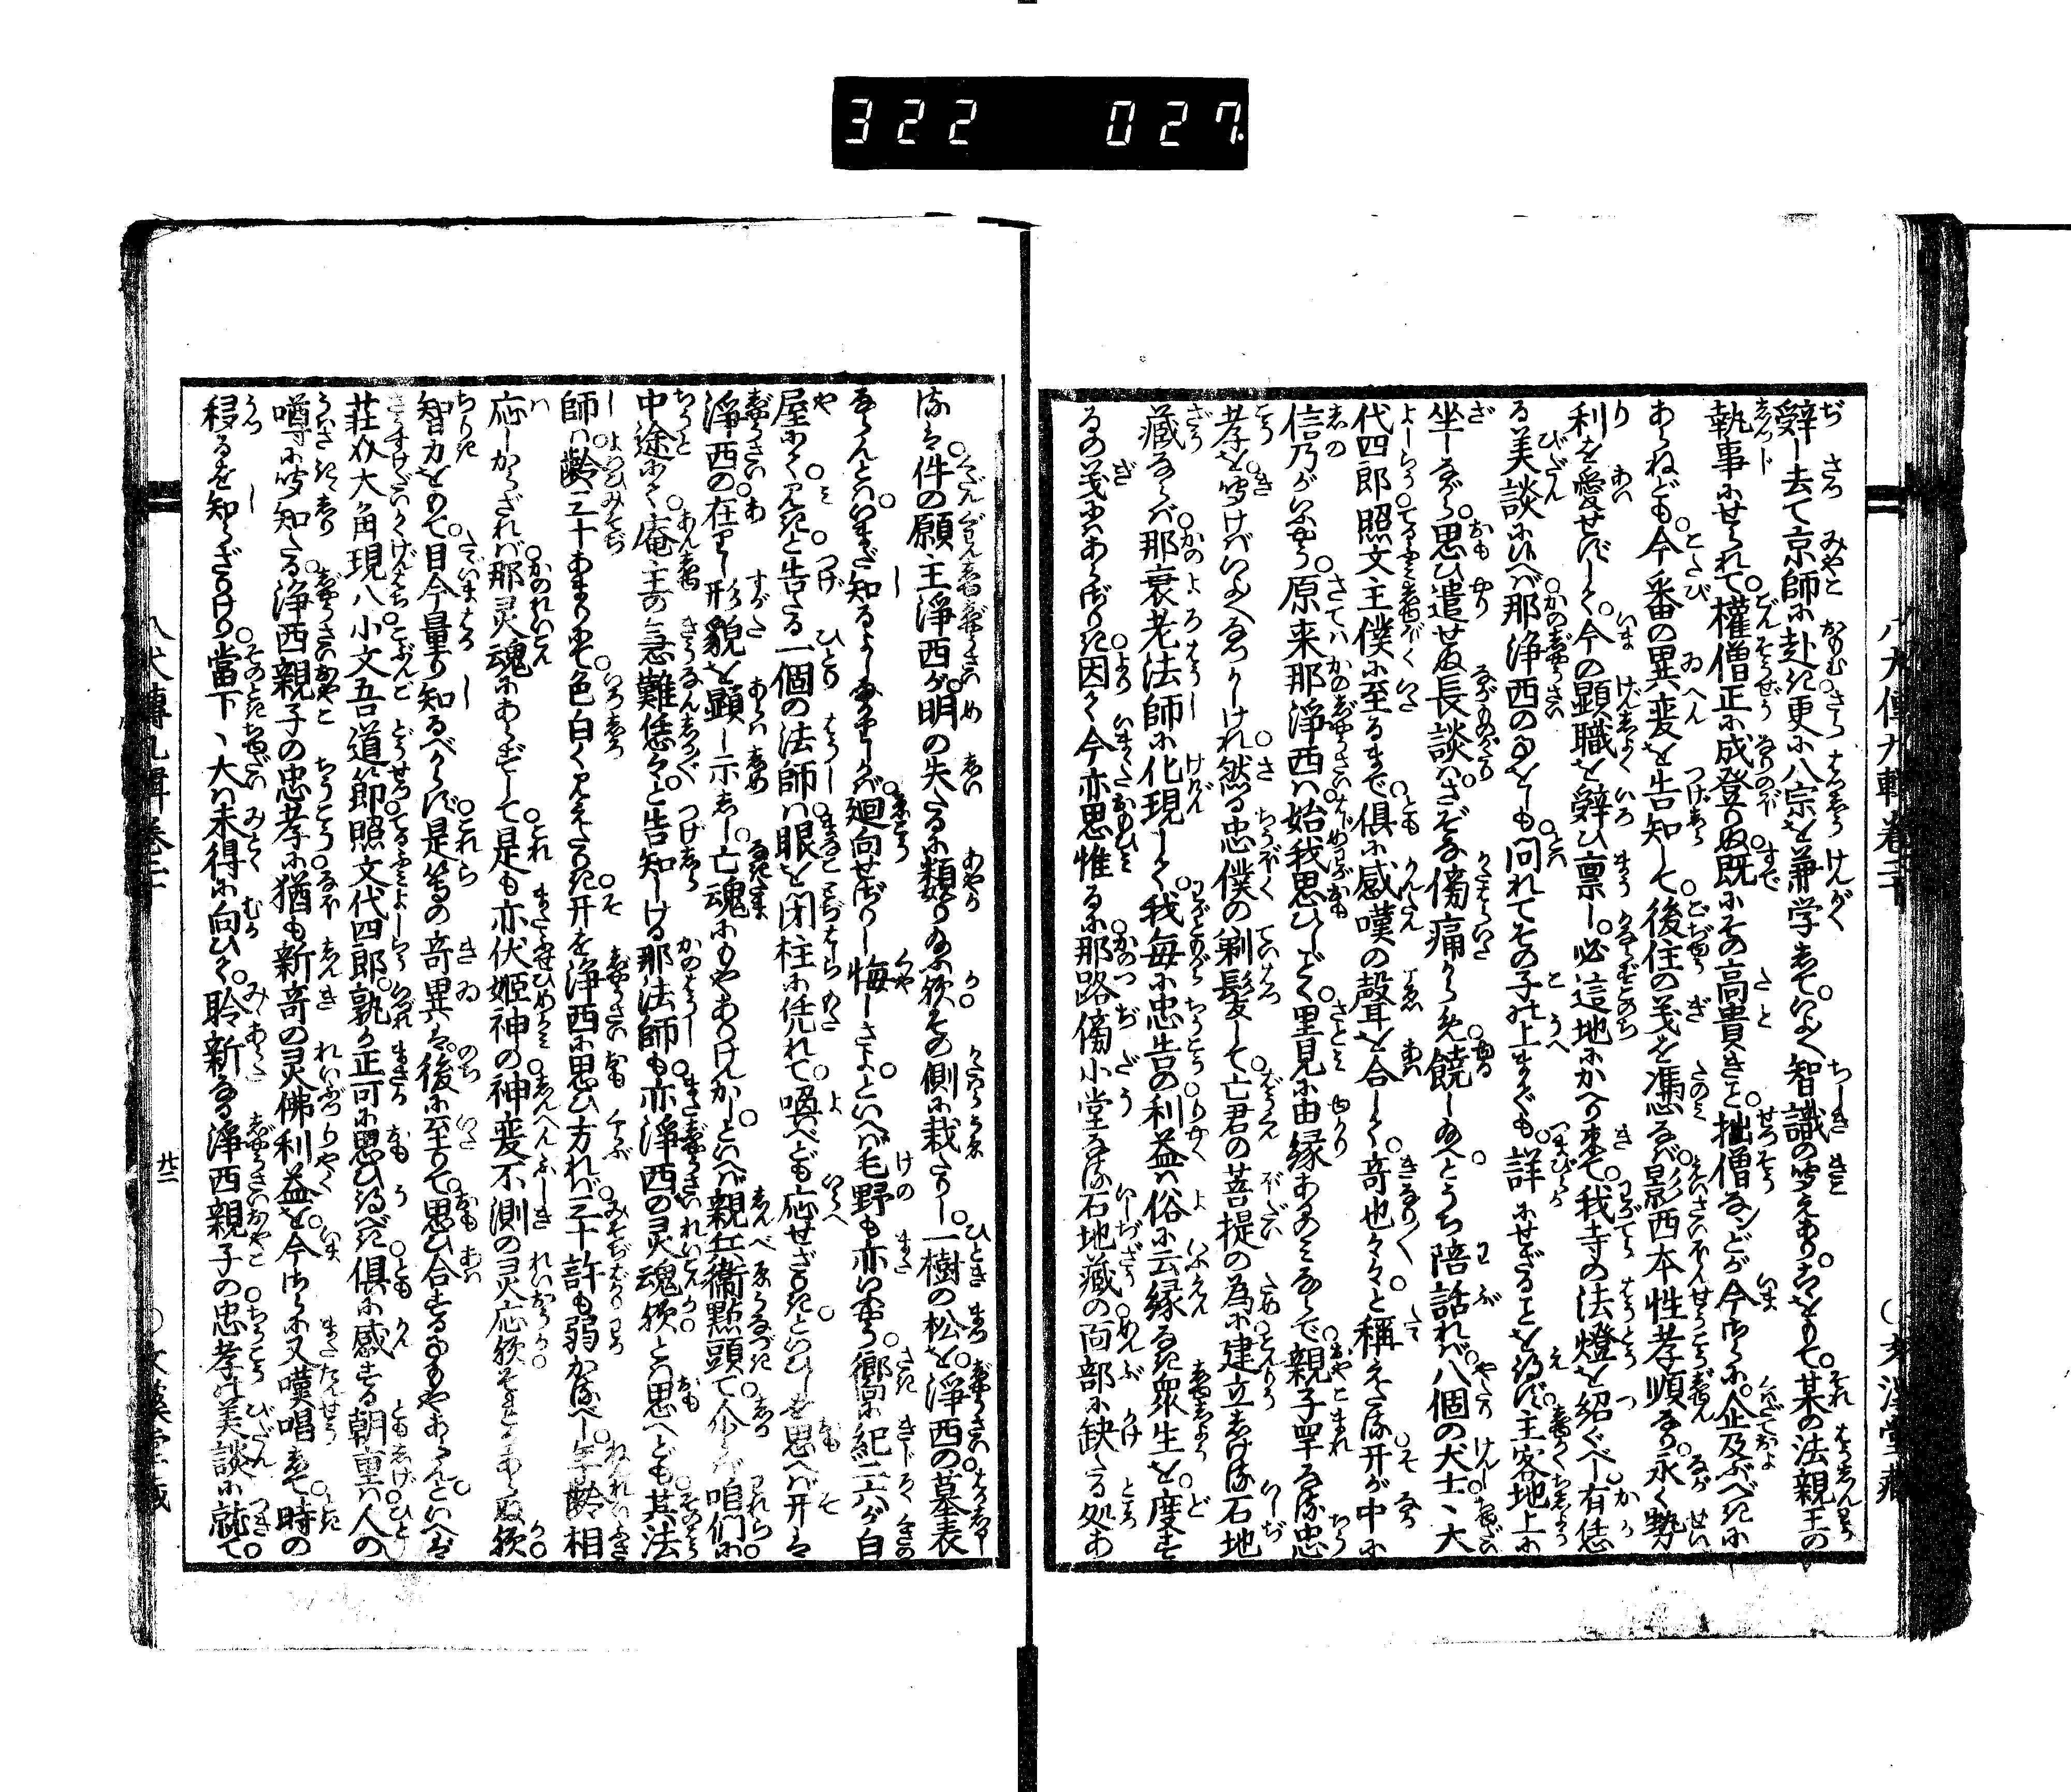 322 027
八犬傳九輯卷二十
○文溪堂藏
辤し去て京師に赴き更に八宗を兼学して。いよ〳〵智識の聞えあり。こゝをもて。某の法親王の
執事にせられて。權僧正に成登りぬ。既にその高貴きこと。拙僧などが今さらに。企及ぶべきに
あらねども。今番の異変を告知して。後住の義を憑るに。影西本性孝順なり。永く勢
利を愛せずして。今の顕職を辤ひ稟し。必這地にかへり来て。我寺の法燈を紹ぐべし。有恁
る美談に候へば。那淨西の事をしも。問れてその子の上までも。詳にせざることを得ず。主客地上に
坐しながら。思ひ遣せぬ長談は。さぞな傍痛からめ。饒し給へとうち陪話れば。八個の犬士、大
代四郎照文主僕に至るまで。俱に感嘆の聲を合して。奇也々々と稱えたる。开が中に
信乃がいふやう。原来那淨西は。始我思ひしごとく。里見に由縁あるのみならで。親子罕なる忠
孝を聞けばいよ〳〵なつかしけれ。然る忠僕の剃髮して。亡君の菩提の為に。建立しける石地
藏ならば。那衰老法師に化現して。我毎に忠告の利益は。俗に云縁なき衆生を。度しが
るの義にはあらざりき。因て今亦思惟るに。那路傍小堂なる。石地藏の面部に缺たる処あ
るは。件の願主淨西が。明の失たるに類り給ふ欤。その側に栽たりし。一樹の松を。淨西の墓表
ならんとは。いまだ知るよしなかりしかば。廻向せざりし悔しさよ。といへば毛野も亦いふやう。郷に紀二六が白
屋にて。見きと告たる一個の法師は。眼を閉柱に凭れて。喚べども応せざりきといひしを思へば开は
淨西の在りし形貌を顕し示しゝ。亡魂にもやありけんかし。といへば親兵衞點頭て。介らば咱們に
中途にて。庵主の急難恁々と告知しける那法師も。亦淨西の灵魂欤。とは思へども其法
師は。齡三十あまりにて。色白く見えたりき。开を淨西に思ひ方れば。三十許も弱かるべし。年齡相
応しからざれば。那灵魂にあらずして。是も亦伏姬神の。神変不測の灵応欤。それにあらぬ欤
智力をもて目今量り知るべからず。是等の奇異は。後に至りて。思ひ合する事もやあらんといへば
莊介大角現八小文吾道節照文代四郎。孰か正可に思ひ得べき。俱に感ずる朝重は。人の
噂に聞知たる淨西親子の忠孝に。猶も新奇の灵佛利益を。今さらに又嘆唱して。時の
移るを知らざりけり。當下、大は未得に向ひて。聆新なる淨西親子の。忠孝の美談に就て。
八犬傳九輯卷二十
廿二
○文溪堂藏